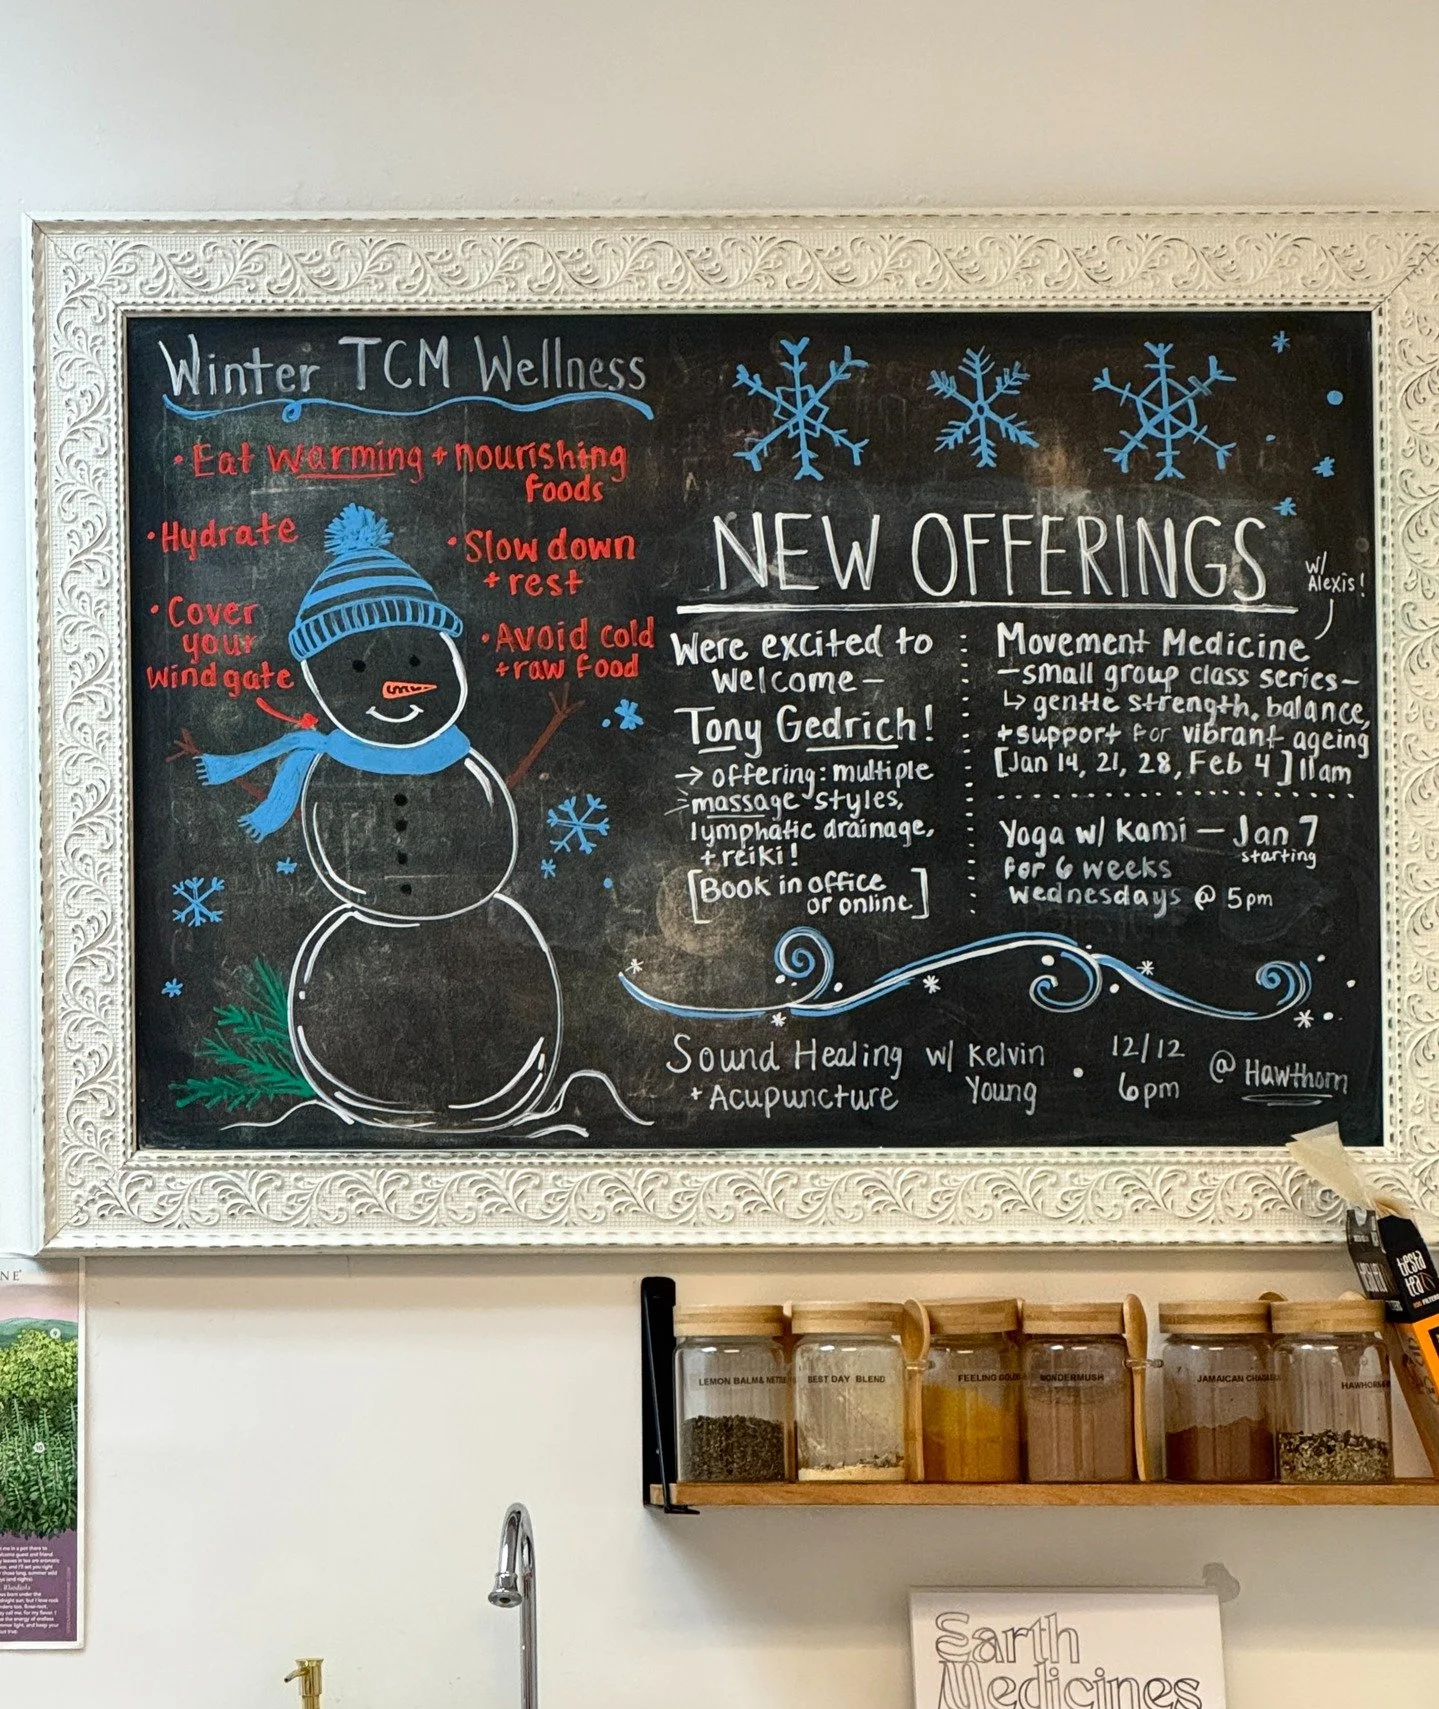 Winter TCM Wellness
• Eat warming + nourishing
foods
• Hydrate
• Slow down
+ rest
• Cover
your
wind gate
• Avoid cold
+ raw food
NEW OFFERINGS
w/
Alexis!
Were excited to
welcome —
Tony Gedrich!
→ offering: multiple
massage styles,
lymphatic drainage,
+ reiki!
[Book in office
or online]
Movement Medicine
— small group class series —
↳ gentle strength, balance,
+ support for vibrant ageing
[Jan 14, 21, 28, Feb 4] 11am
Yoga w/ Kami — Jan 7
starting
for 6 weeks
Wednesdays @ 5pm
Sound Healing w/ Kelvin • 12/12 @ Hawthorn
+ Acupuncture Young 6pm
NE
tiesta
tea
LEMON BALM & NETTLE
BEST DAY BLEND
FEELING
WONDERMUSH
JAMAICAN
Rhodiola
Earth
Medicines